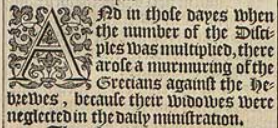 ANd in those dayes when
the number of the Disci-
ples was multiplied, there
arose a murmuring of the
Grecians against the He-
brewes, because their widowes were
neglected in the daily ministration.